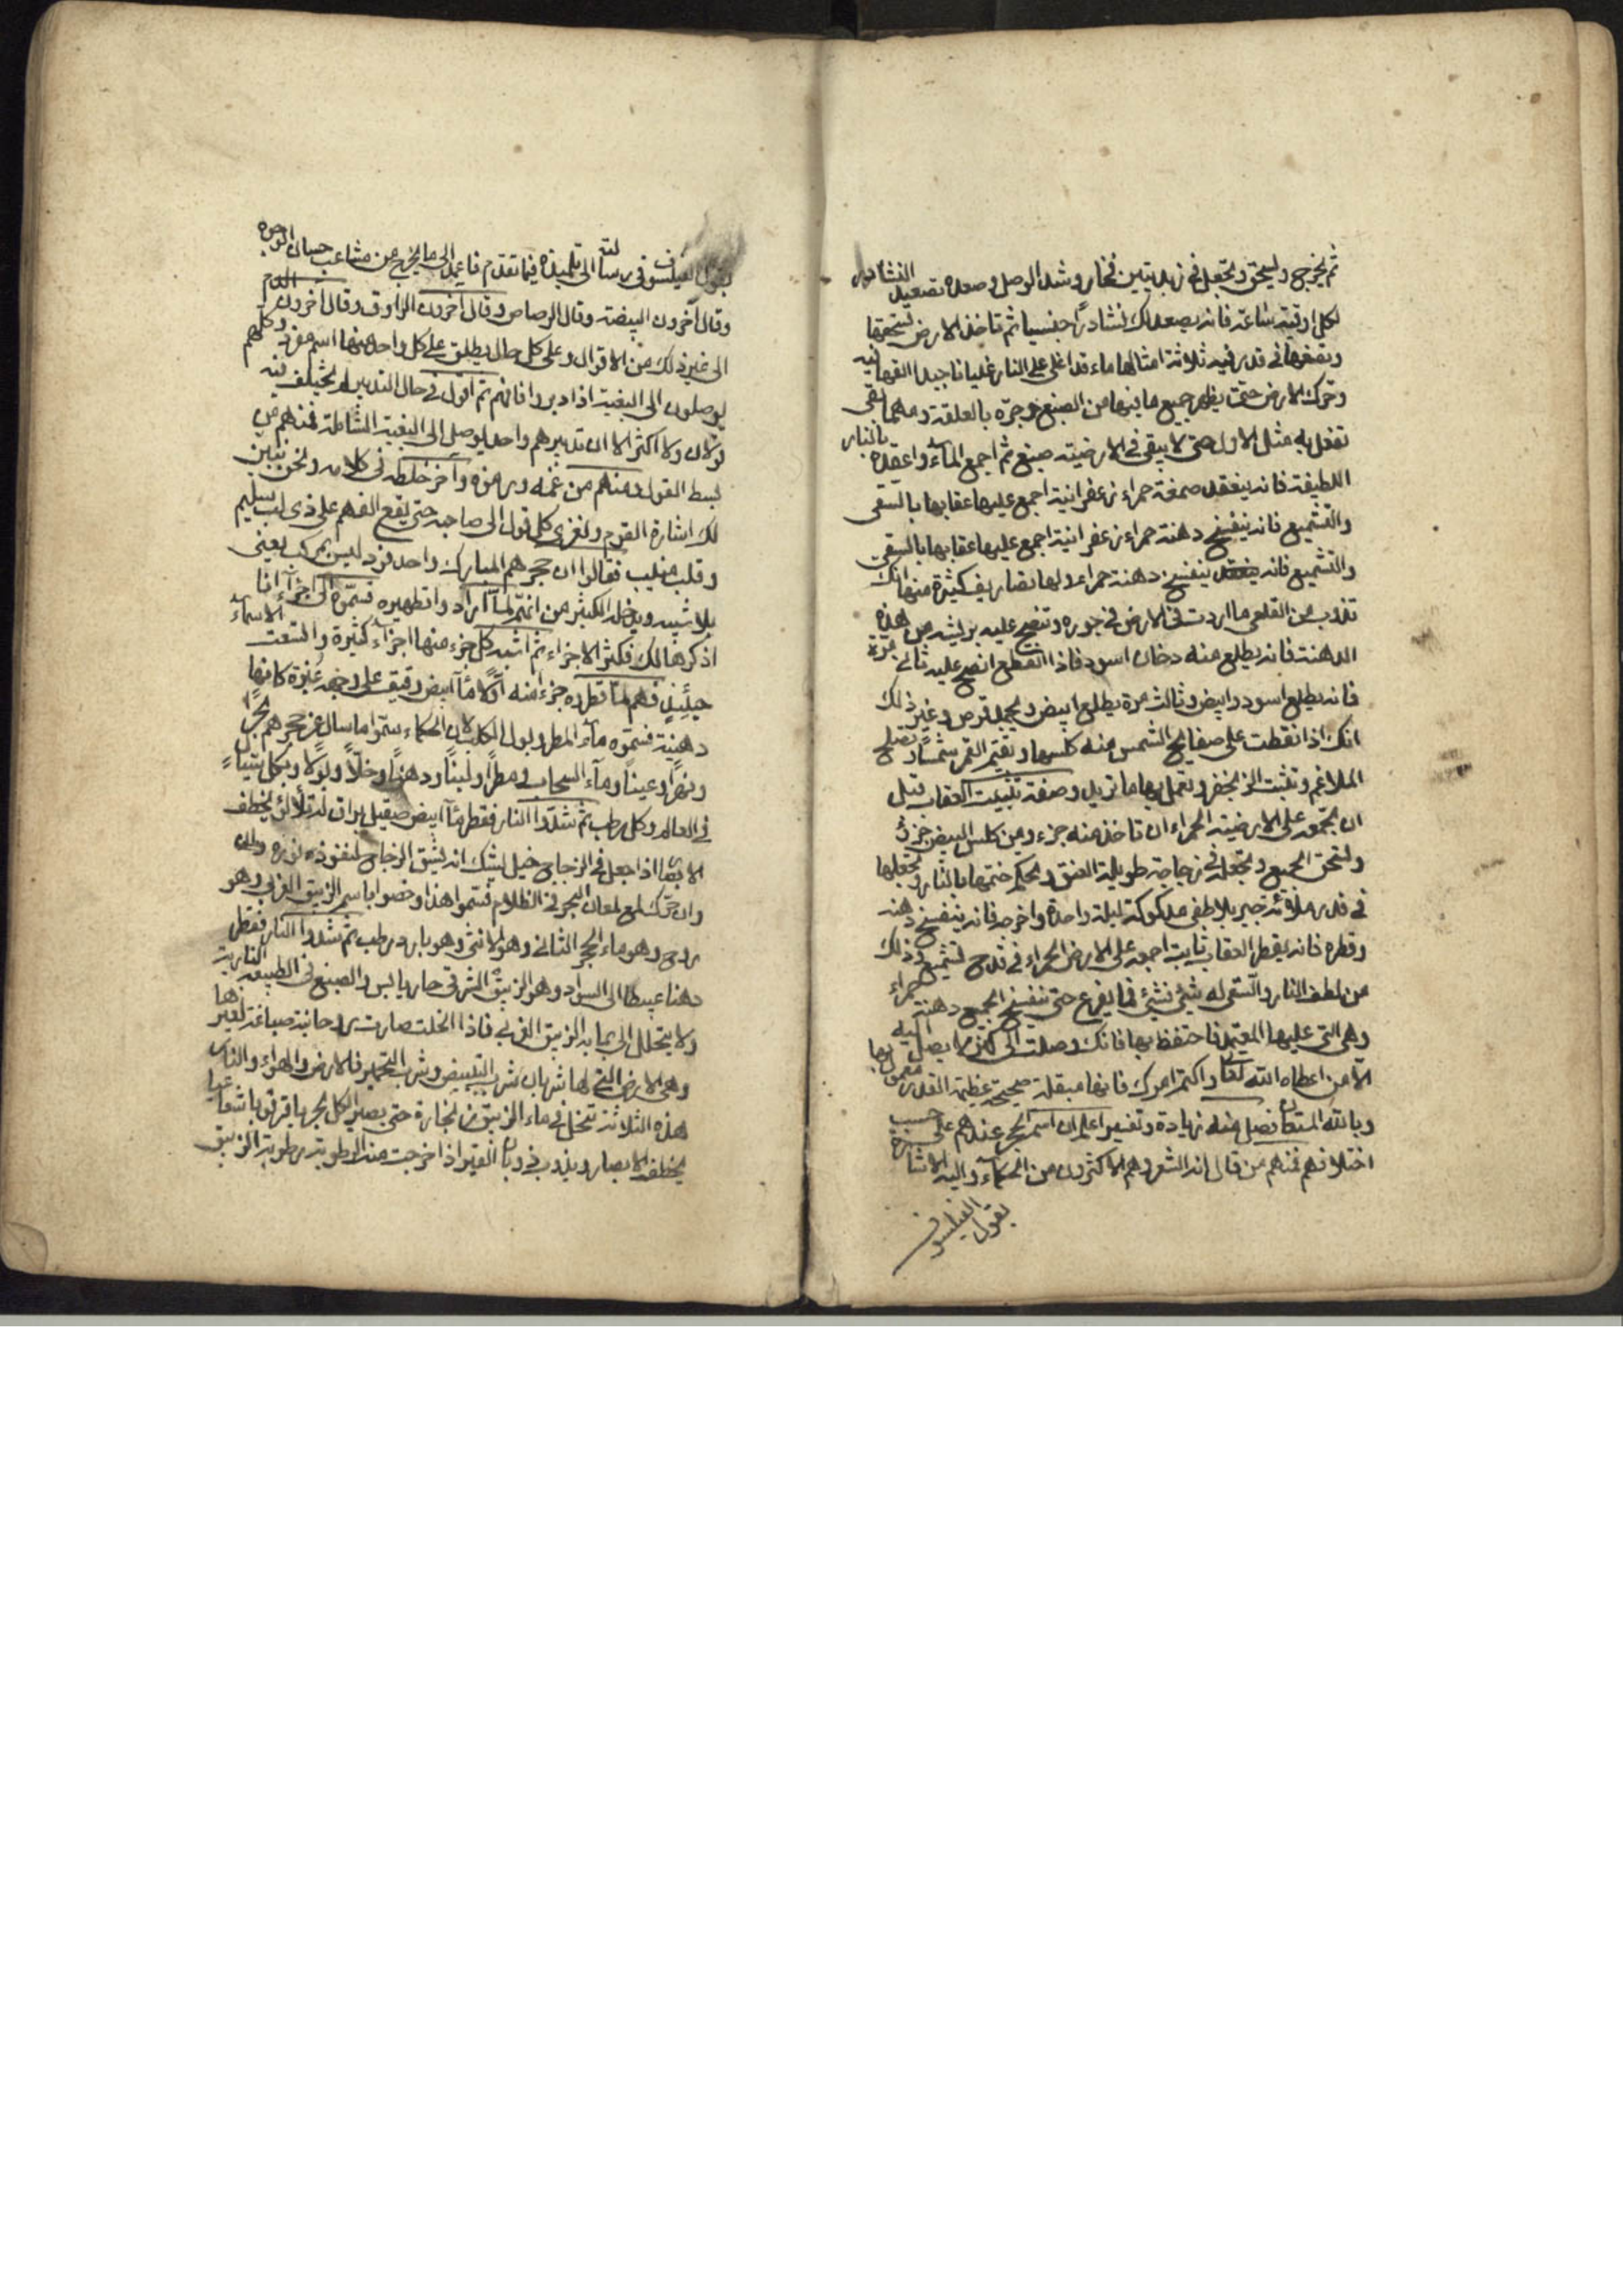 ثم يخرج ويسحق ويجعل في زبديتين فخار وشد الوصل وصعده تصعيد النشادر
لكل اوقية ساعة فانه يصعد لك نشادرا جنسيا ثم تاخذ الارض تسحقها
وتضعها في قدر فيه ثلاثة امثالها ماء قد اغلى على النار غليانا جيدا القها فيه
وحرك الارض حتى يظهر جميع ما فيها من الصبغ وجره بالعلقة ومهما بقي
تفعل به مثل الاول حتى لا يبقى في الارضية صبغ ثم اجمع الماء واعقده بالنار
اللطيفة فانه ينعقد صمغة حمراء زعفرانية اجمع عليها عقابها بالسقي
والتشميع فانه ينفسخ دهنة حمراء زعفرانية اجمع عليها عقابها بالسقي
والتشميع فانه ينفسخ دهنة حمراء ولها تصاريف كثيرة منها انك
تذوب من القلعي ما اردت في الارض في جوره وتنضح عليه بريشه من هذه
الدهنة فانه يطلع منه دخان اسود فاذا انقطع انضح عليه ثاني مرة
فانه يطلع اسود وابيض وثالث مرة يطلع ابيض ويجمد قرص وغير ذلك
انك اذا نقطت على صفايح الشمس منه كلسها ويقيم القمر شمسا وتصلح
الملاغم وتثبت الزنجفر وتعمل بها ما تريد وصفة تثبيت العقاب قبل
ان تجمعه على الارضية الحمراء ان تاخذ منه جزء ومن كلس البيض جزؤ
وتسحق الجميع وتجعله في زجاجة طويلة العنق وتحكم ختمها بالنار وتجعلها
في قدر ملؤته جير بلا طفي مدكوكة ليلة واحدة واخرجه فانه ينفسخ دهنه
وقطره فانه يقطر العقاب ثابت اجمعه على الارض الحمراء في قدح لتشميع وذلك
من لطف النار والسقي له شئ فشئ فما يفرغ حتى ينفسخ الجميع دهنة حمراء
وهي التي عليها المعتمد فاحتفظ بها فانك وصلت الى كنز لا يصل اليه
الا من اعطاه الله تعالى واكتم امرك فانها مبقلة صحيحة عظيمة القدر معمول بها
وبالله المستعان فصل منه زيادة وتفسير اعلم ان اسم الحجر عندهم على حسب
اختلافهم فمنهم من قال انه الشعر وهم الاكثرون من الحكماء واليه الاشارة
يقول الفيلسوف
يقول الفيلسوف في رسالته الى تلميذه فيما تقدم فاعمد الى ما يخرج من مشاعب حسان الوجوه
وقال آخرون البيضة وقال الرصاص وقال آخرون الراوق وقال آخرون الدم
الى غير ذلك من الاقوال وعلى كل حال يطلق على كل واحد منها اسم مفرد وكلهم
يوصلون الى البغية اذا دبروا فافهم ثم اقول في حال التدبير لم يختلف فيه
قولان ولا اكثر الا ان تدبيرهم واحد يوصل الى البغية الشاملة فمنهم من
بسط القول ومنهم من غمه ورمزه وآخر خلطه في كلامه ونحن نبين
لك اشارة القوم ونعزي كل قول الى صاحبه حتى يقع الفهم على ذي لب سليم
وقلب منيب فقالوا ان حجرهم المبارك واحد فرد ليس بمركب يعني
بلا شبيه ويدخل الكثير من انهم لما ارادوا تطهيره قسموه الى اجزآء انا
اذكرها لك فكثر الاجزاء ثم اشبه كل جزء منها اجزآء كثيرة واتسعت الاسماء
حينئذ فهم لما تقطره جزء منه اولا مآ ابيض رقيق على وجهه غبرة كانها
دهنية فسموه مآء المطر وبول الكلب لان الحكماء سموا ما سال عن حجرهم بحرا
ونهرا وعينا ومآء السحاب ومطرا ولبنا ودهنا وخلا وبولا وبكل شيء
في العالم وكل رطب ثم شددوا النار فقطر مآ ابيض صقيل براق له تلألؤ يخطف
الابصار اذا جعل في الزجاج خيل ليشك انه يشق الزجاج لنفوذه نوره
وان حرك لمع لمعان البحر في الظلام فسموا هذا وخصوا باسم الزيبق الغربي وهو
روح وهو ماء الحجر الثاني وهو الانثى وهو بارد رطب ثم شددوا النار فقطر
دهنا عبيطا الى السواد وهو الزيبق الشرقي حار يابس والصبغ في الطبيعة النارية
ولا يتحلل الى بما به الزيبق الغربي فاذا انحلت صارت روحانية صباغة لغيرها
وهي الارض التي لها شربان شرب التبييض وشرب التحمير فالارض والهواء والنار
هذه الثلاثة تنحل في ماء الزيبق حتى يصير الكل بحر يا قرق باشعاعها
يخطف الابصار ويذوب في وبان القير اذا خرجت منه الرطوبة رطوبة الزيبق